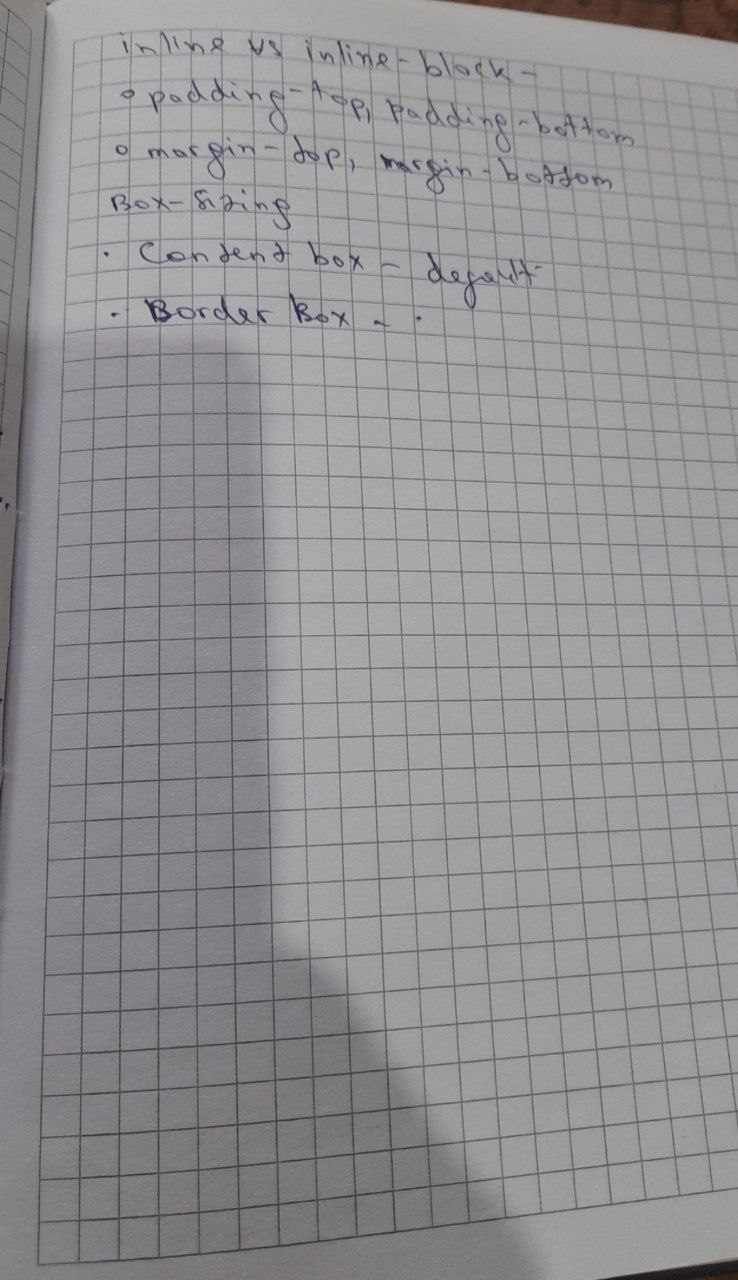 inline vs inline-block-
o padding-top, padding-bottom
o margin-top, margin-bottom
Box-Sizing
· Content box - default
· Border Box - ·